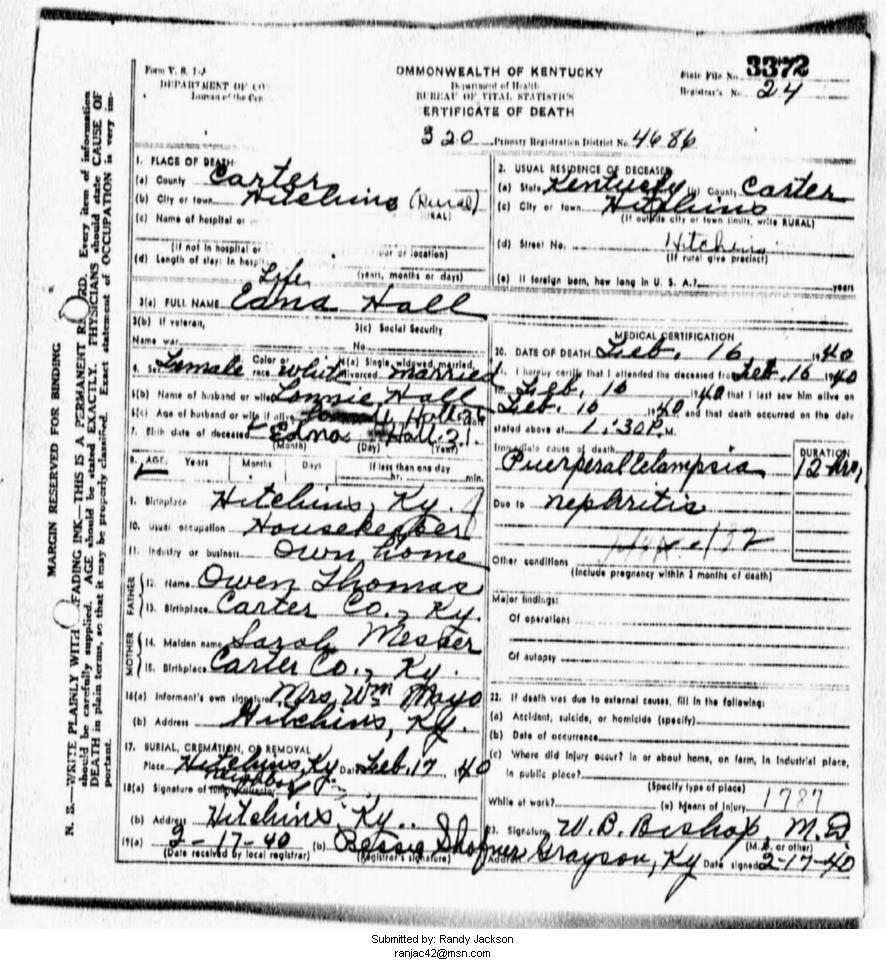 Form V. S. 1-J
DEPARTMENT OF CO
Bureau of the Cen
OMMONWEALTH OF KENTUCKY
Department of Health
BUREAU OF VITAL STATISTICS
ERTIFICATE OF DEATH
State File No. 3372
Registrar's No. 24
320 Primary Registration District No. 4686
1. PLACE OF DEATH:
(a) County Carter
(b) City or town Hitchins (Rural)
RURAL)
(c) Name of hospital or
(If not in hospital or
or location)
(d) Length of stay: In hospi
(years, months or days)
Life
2. USUAL RESIDENCE OF DECEASED
(a) State Kentucky (b) County Carter
(c) City or town Hitchins
(If outside city or town limits, write RURAL)
(d) Street No. Hitchins
(If rural give precinct)
(e) If foreign born, how long in U. S. A.? years
3(a) FULL NAME Edna Hall
3(b) If veteran,
Name war
3(c) Social Security
No.
4. Sex Female
Color or race white
(a) Single, widowed, married, divorced married
6(b) Name of husband or wife Lonnie Hall
6(c) Age of husband or wife if alive Hall
7. Birth date of deceased Edna Hall 21.
(Month) (Day) (Year)
8. AGE: Years Months Days If less than one day
hr. min.
9. Birthplace Hitchins, Ky.
10. Usual occupation Housekeeper
11. Industry or business Own home
FATHER
12. Name Owen Thomas
13. Birthplace Carter Co., Ky.
MOTHER
14. Maiden name Sarah Messer
15. Birthplace Carter Co., Ky.
16(a) Informant's own signature Mrs. Wm Mayo
(b) Address Hitchins, Ky.
17. BURIAL, CREMATION, OR REMOVAL
Place Hitchins, Ky Date Feb. 17 1940
18(a) Signature of
(b) Address Hitchins Ky..
19(a) 2-17-40 (b) Bessie Shofner
(Date received by local registrar) (Registrar's signature)
MEDICAL CERTIFICATION
20. DATE OF DEATH Feb. 16, 1940
I hereby certify that I attended the deceased from Feb. 16 1940
to Feb. 16 1940 that I last saw him alive on
Feb. 16 1940 and that death occurred on the date
stated above at 1:30 P. M.
Immediate cause of death
DURATION
Puerperal Eclampsia 12 hrs,
Due to nephritis
Other conditions
(Include pregnancy within 3 months of death)
Major findings:
Of operations
Of autopsy
22. If death was due to external causes, fill in the following:
(a) Accident, suicide, or homicide (specify)
(b) Date of occurrence
(c) Where did injury occur? In or about home, on farm, in industrial place,
in public place?
(Specify type of place)
While at work? (e) Means of injury 1787
23. Signature W. B. Bishop, M. D.
(M. D. or other)
Address Grayson, Ky Date signed 2-17-40
MARGIN RESERVED FOR BINDING
N. B. WRITE PLAINLY WITH FADING INK—THIS IS A PERMANENT RECORD. Every item of information
should be carefully supplied. AGE should be stated EXACTLY. PHYSICIANS should state CAUSE OF
DEATH in plain terms, so that it may be properly classified. Exact statement of OCCUPATION is very im-
portant.
Submitted by: Randy Jackson
ranjac42@msn.com